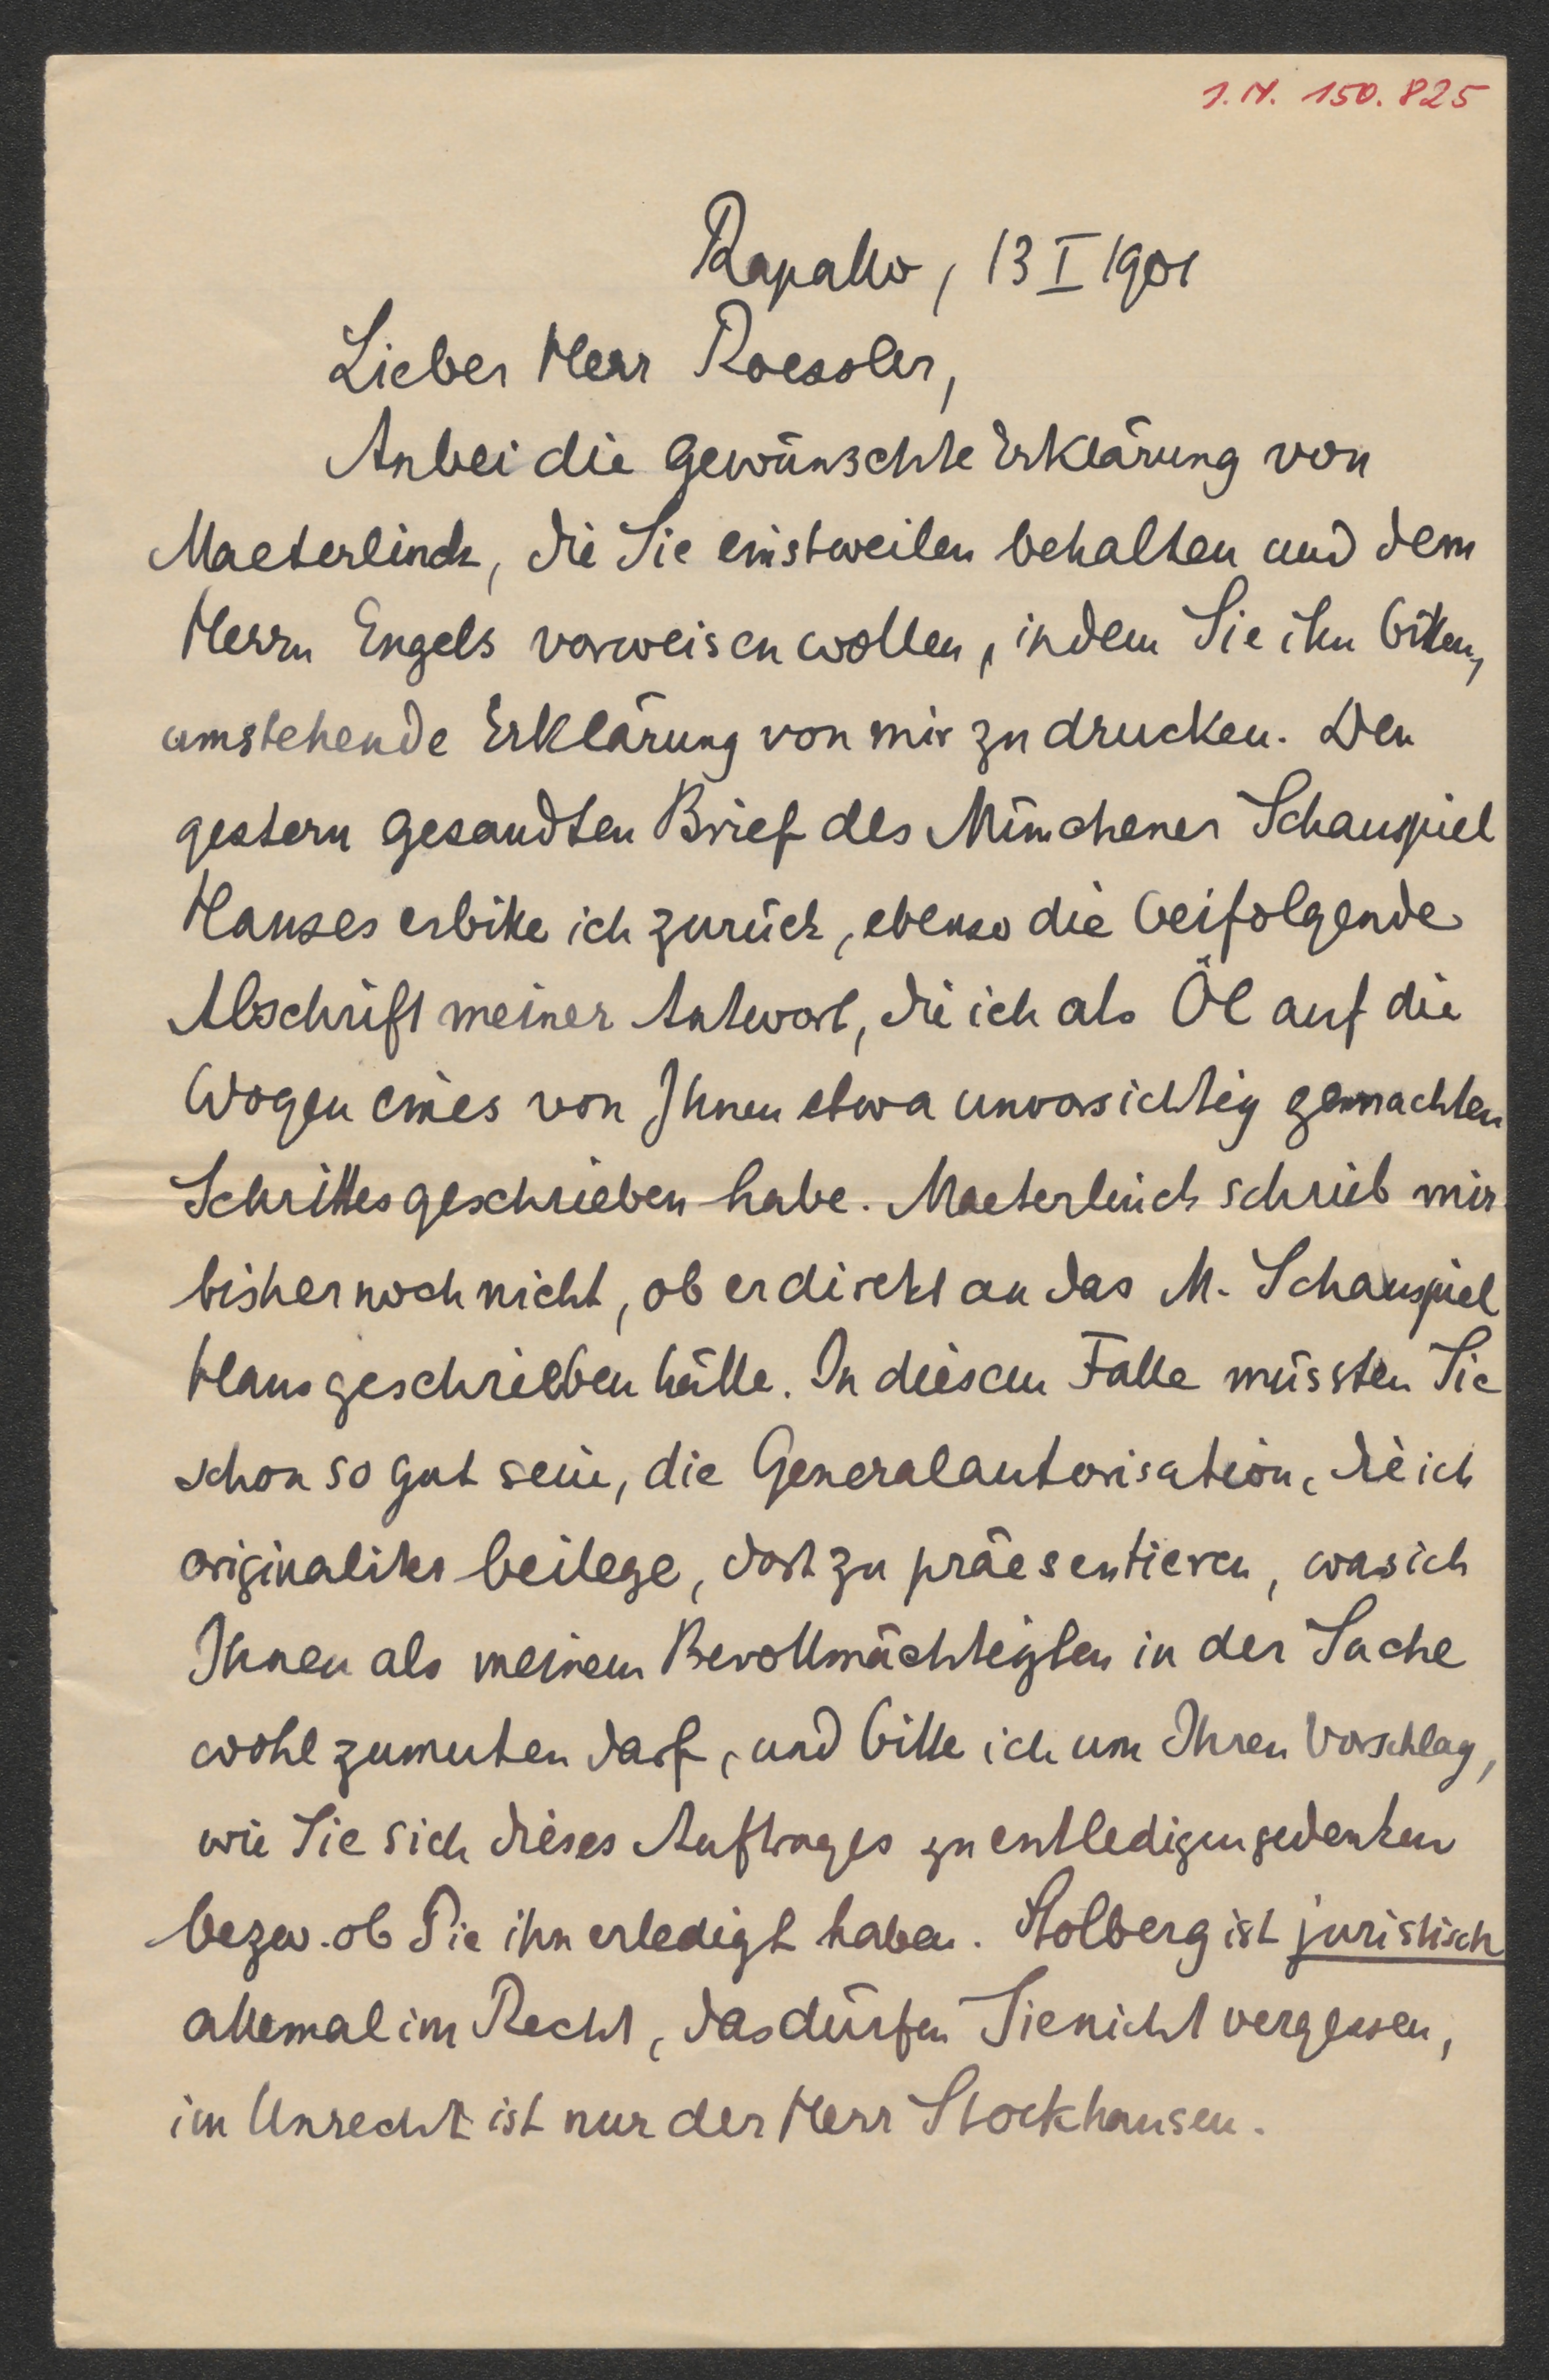 I.N. 150.825
Rapallo, 13 I 1901
Lieber Herr Roessler,
Anbei die gewünschte Erklärung von
Maeterlinck, die Sie einstweilen behalten und dem
Herrn Engels vorweisen wollen, indem Sie ihn bitten,
umstehende Erklärung von mir zu drucken. Den
gestern gesandten Brief des Münchener Schauspiel
Hauses erbitte ich zurück, ebenso die beifolgende
Abschrift meiner Antwort, die ich als Öl auf die
Wogen eines von Ihnen etwa unvorsichtig gemachten
Schrittes geschrieben habe. Maeterlinck schrieb mir
bisher noch nicht, ob er direkt an das M. Schauspiel
Haus geschrieben hätte. In diesem Falle müssten Sie
schon so gut sein, die Generalautorisation, die ich
originaliter beilege, dort zu präesentieren, was ich
Ihnen als meinem Bevollmächtigten in der Sache
wohl zumuten darf, und bitte ich um Ihren Vorschlag,
wie Sie sich dieses Auftrages zu entledigen gedenken
bezw. ob Sie ihn erledigt haben. Stolberg ist juristisch
allemal im Recht, das dürfen Sie nicht vergessen,
im Unrecht ist nur der Herr Stockhausen.